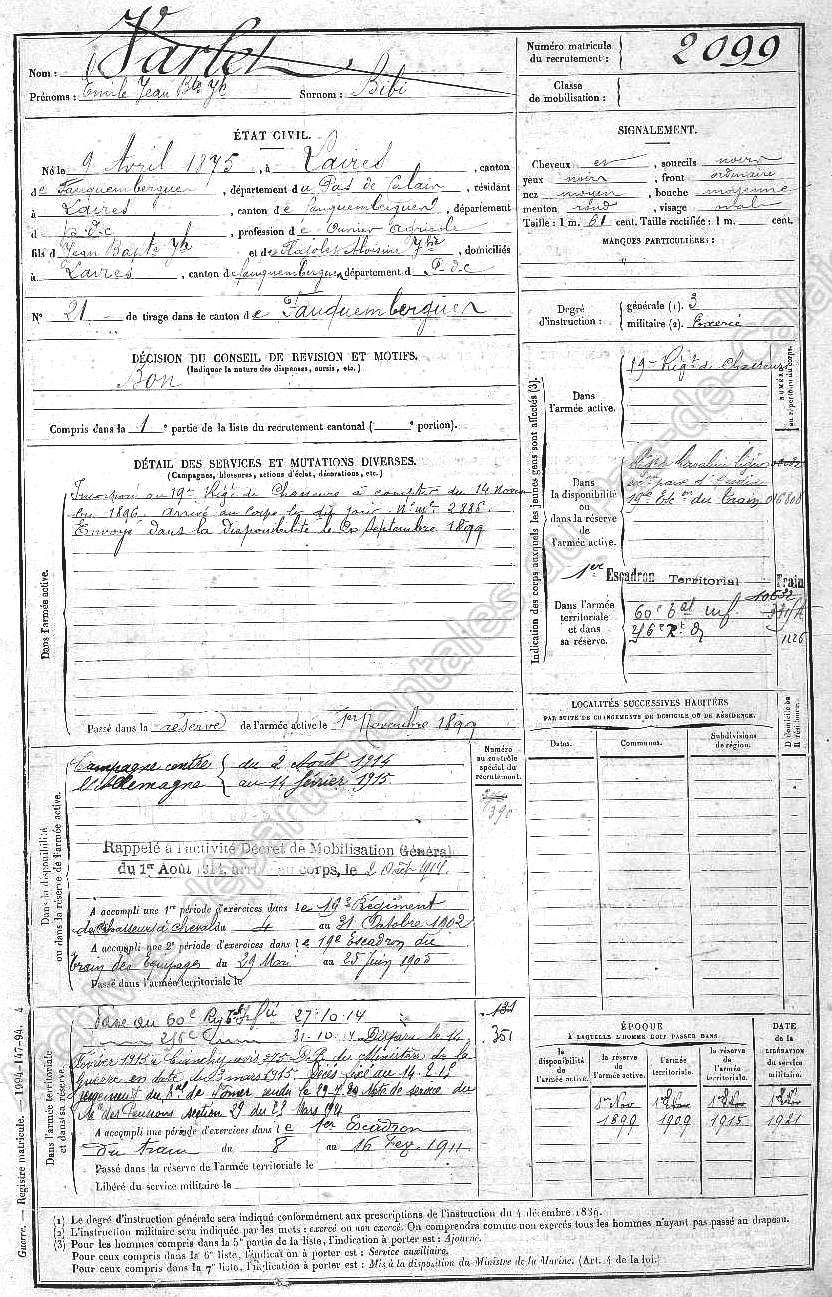 Varlet
Nom :
Prénoms : Emile Jean Bte Jh Surnom : Bibi
Numéro matricule
du recrutement : 2099
Classe
de mobilisation :
ÉTAT CIVIL.
Né le 9 Avril 1875, à Laires, canton
de Fauquembergues, département du Pas de Calais, résidant
à Laires, canton de Fauquembergues, département
d P-d-c, profession de Ouvrier Agricole
fils d Jean Bapte Jh et de, domiciliés
à Laires, canton de Fauquembergues département d P-d-c
N° 21 de tirage dans le canton de Fauquembergues
SIGNALEMENT.
Cheveux et, sourcils noirs
yeux noir, front ordinaire
nez moyen, bouche moyenne
menton rond, visage ovale
Taille : 1 m. 61 cent. Taille rectifiée : 1 m. cent.
MARQUES PARTICULIÈRES :
"
Degré
d'instruction :
générale (1). 3
militaire (2). Exercé
DÉCISION DU CONSEIL DE REVISION ET MOTIFS.
(Indiquer la nature des dispenses, sursis, etc.)
Bon
Compris dans la 1e partie de la liste du recrutement cantonal ( e portion).
DÉTAIL DES SERVICES ET MUTATIONS DIVERSES.
(Campagnes, blessures, actions d'éclat, décorations, etc.)
Dans l'armée active.
Incorporé au 19me Régt de Chasseurs à compter du 14 Novem
bre 1896. arrivé au corps le dit jour. N° mle 2886.
Envoyé dans la disponibilité le Septembre 1899
Passé dans la réserve de l'armée active le 1er Novembre 1899
Indication des corps auxquels les jeunes gens sont affectés (3).
Dans
l'armée active.
19me Régt de Chasseurs
Dans
la disponibilité
ou dans la réserve
de l'armée active.
19e Esc on du Train 016808
1er Escadron Territorial Train
Dans l'armée
territoriale
et dans
sa réserve.
10632
60e bat inf.
1126
LOCALITÉS SUCCESSIVES HABITÉES
PAR SUITE DE CHANGEMENTS DE DOMICILE OU DE RÉSIDENCE.
Dates. Communes. Subdivisions
de région. D domicile ou
R résidence.
Dans la disponibilité
ou dans la réserve de l'armée active.
Numéro
au contrôle
spécial du
recrutement.
390
Campagne contre du 2 Août 1914
l'Allemagne au 14 février 1915
Rappelé à l'activité Décret de Mobilisation Général
du 1er Août 1914, arrivé au corps, le 2 Août 1914.
A accompli une 1re période d'exercices dans le 19e Régiment
de Chasseurs à cheval du 4 au 31 Octobre 1902
A accompli une 2e période d'exercices dans le 19e Escadron du
train des Equipages du 29 Mai au 25 Juin 1905
Passé dans l'armée territoriale le
Dans l'armée territoriale
et dans sa réserve.
Passé au 60e 27-10-14
351
31-10-14 Disparu le 14
Février 1915 à avis 275 D.G. du Ministère de la
Guerre en date du 13 mars 1915. Décès fixé au 14.2.15
Jugement du de St Omer rendu le Note de service du
Mre des Pensions section 29 du 23 Mars 1921
A accompli une période d'exercices dans le 1er Escadron
du train du 8 au 16 Fev. 1911
Passé dans la réserve de l'armée territoriale le
Libéré du service militaire le
ÉPOQUE
À LAQUELLE L'HOMME DOIT PASSER DANS
DATE
DE LA
LIBÉRATION
du service
militaire.
la
disponibilité
de l'armée active.
la réserve
de
l'armée active.
l'armée
territoriale.
la réserve
de l'armée
territoriale.
1er Nov
1899 1909 1915 1921
(1) Le degré d'instruction générale sera indiqué conformément aux prescriptions de l'instruction du 4 décembre 1889.
(2) L'instruction militaire sera indiquée par les mots : exercé ou non exercé. On comprendra comme non exercés tous les hommes n'ayant pas passé au drapeau.
(3) Pour les hommes compris dans la 5e partie de la liste, l'indication à porter est : Ajourné.
Pour ceux compris dans la 6e liste, l'indication à porter est : Service auxiliaire.
Pour ceux compris dans la 7e liste, l'indication à porter est : Mis à la disposition du Ministre de la Marine. (Art. 4 de la loi.)
Guerre. — Registre matricule. — 1094-147-94. 4
Archives départementales du Pas-de-Calais